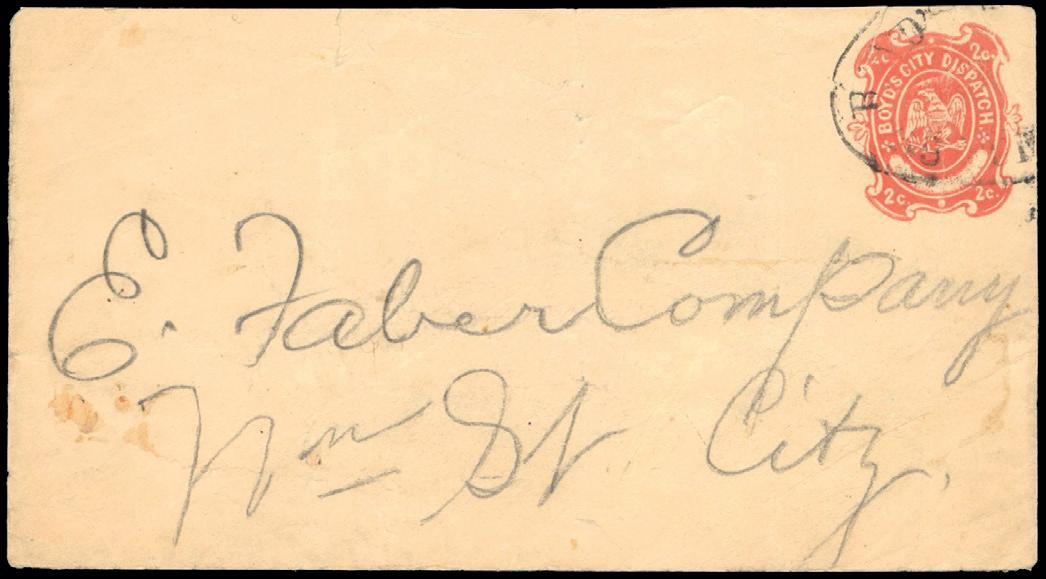 2c.
BOYD'S CITY DISPATCH
2c. 2c.
E. Faber Company
Wm St. City.